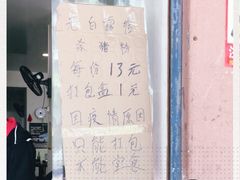 老白
杀猪粉
每份13元
打包盒1元
因疫情原因
只能打包
不能堂食